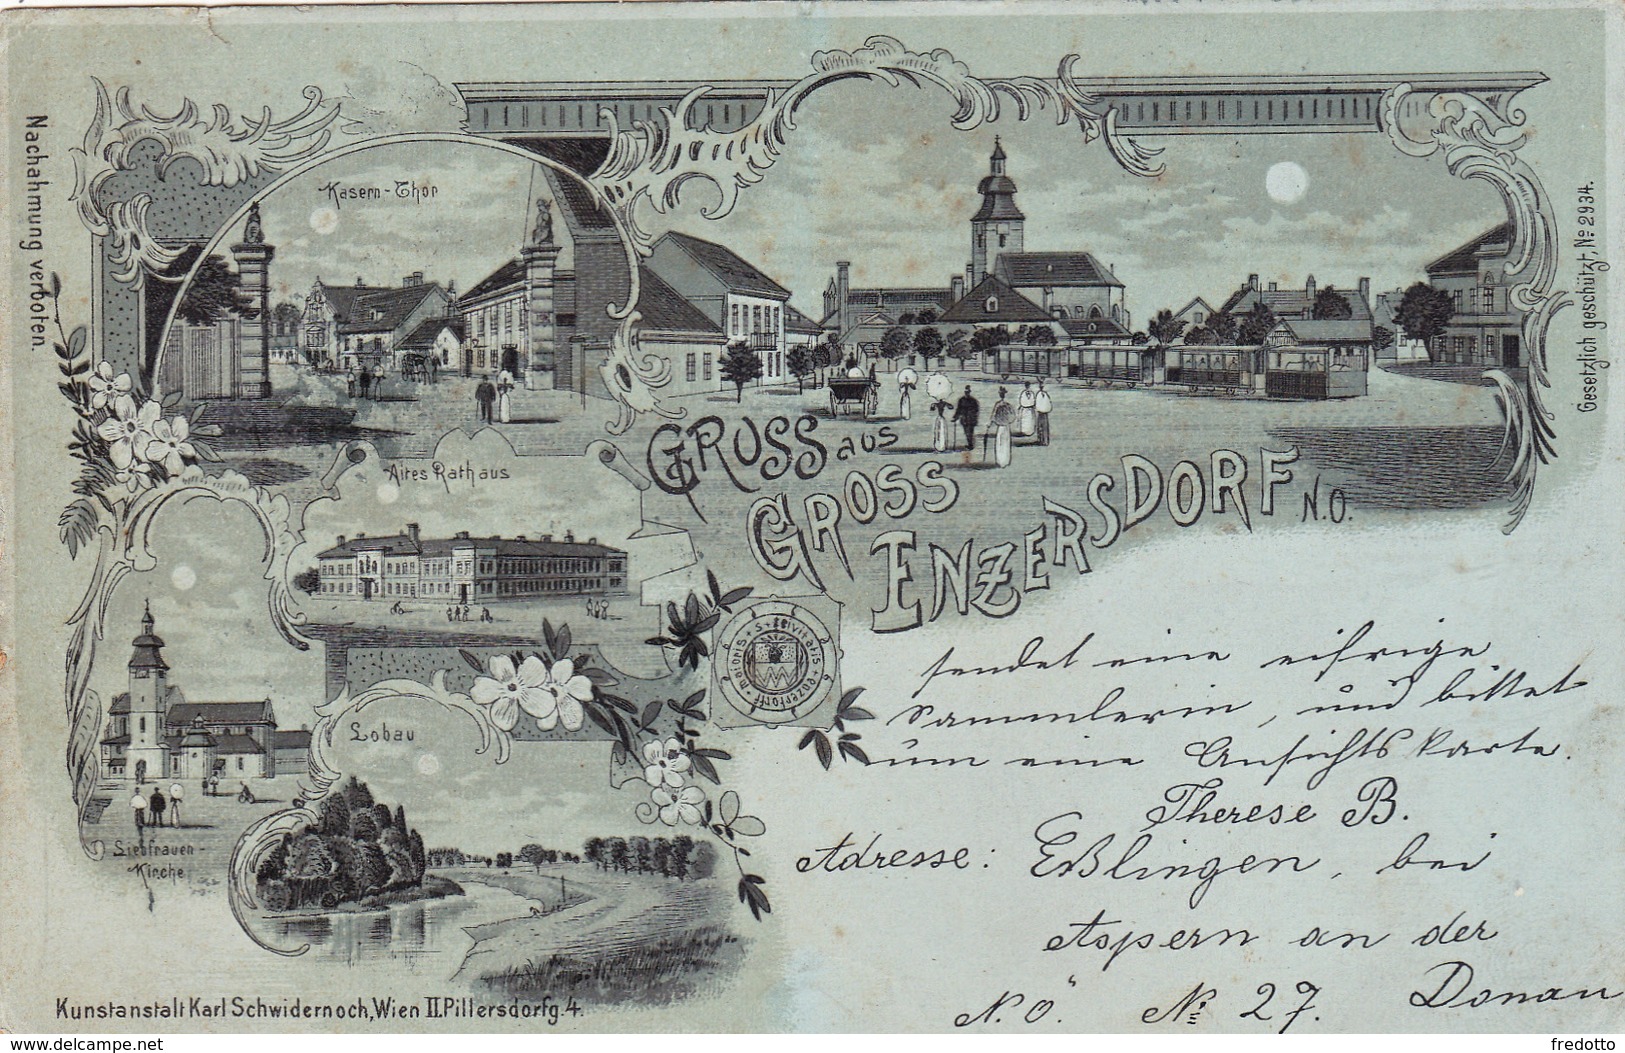 Nachahmung verboten.
Kasern-Thor
Altes Rathaus
Gesetzlich geschützt, No 2934.
GRUSS aus
GROSS
ENZERSDORF N.Ö.
S + civitatis + enzertorff + maioris +
Lobau
Liebfrauen-
Kirche
sendet eine eifrige
Sammlerin, und bittet
um eine Ansichtskarte.
Therese B.
Adresse: Eßlingen, bei
Aspern an der
Donau
N.Ö. No 27.
Kunstanstalt Karl Schwidernoch, Wien II. Pillersdorfg. 4.
delcampe.net
fredotto